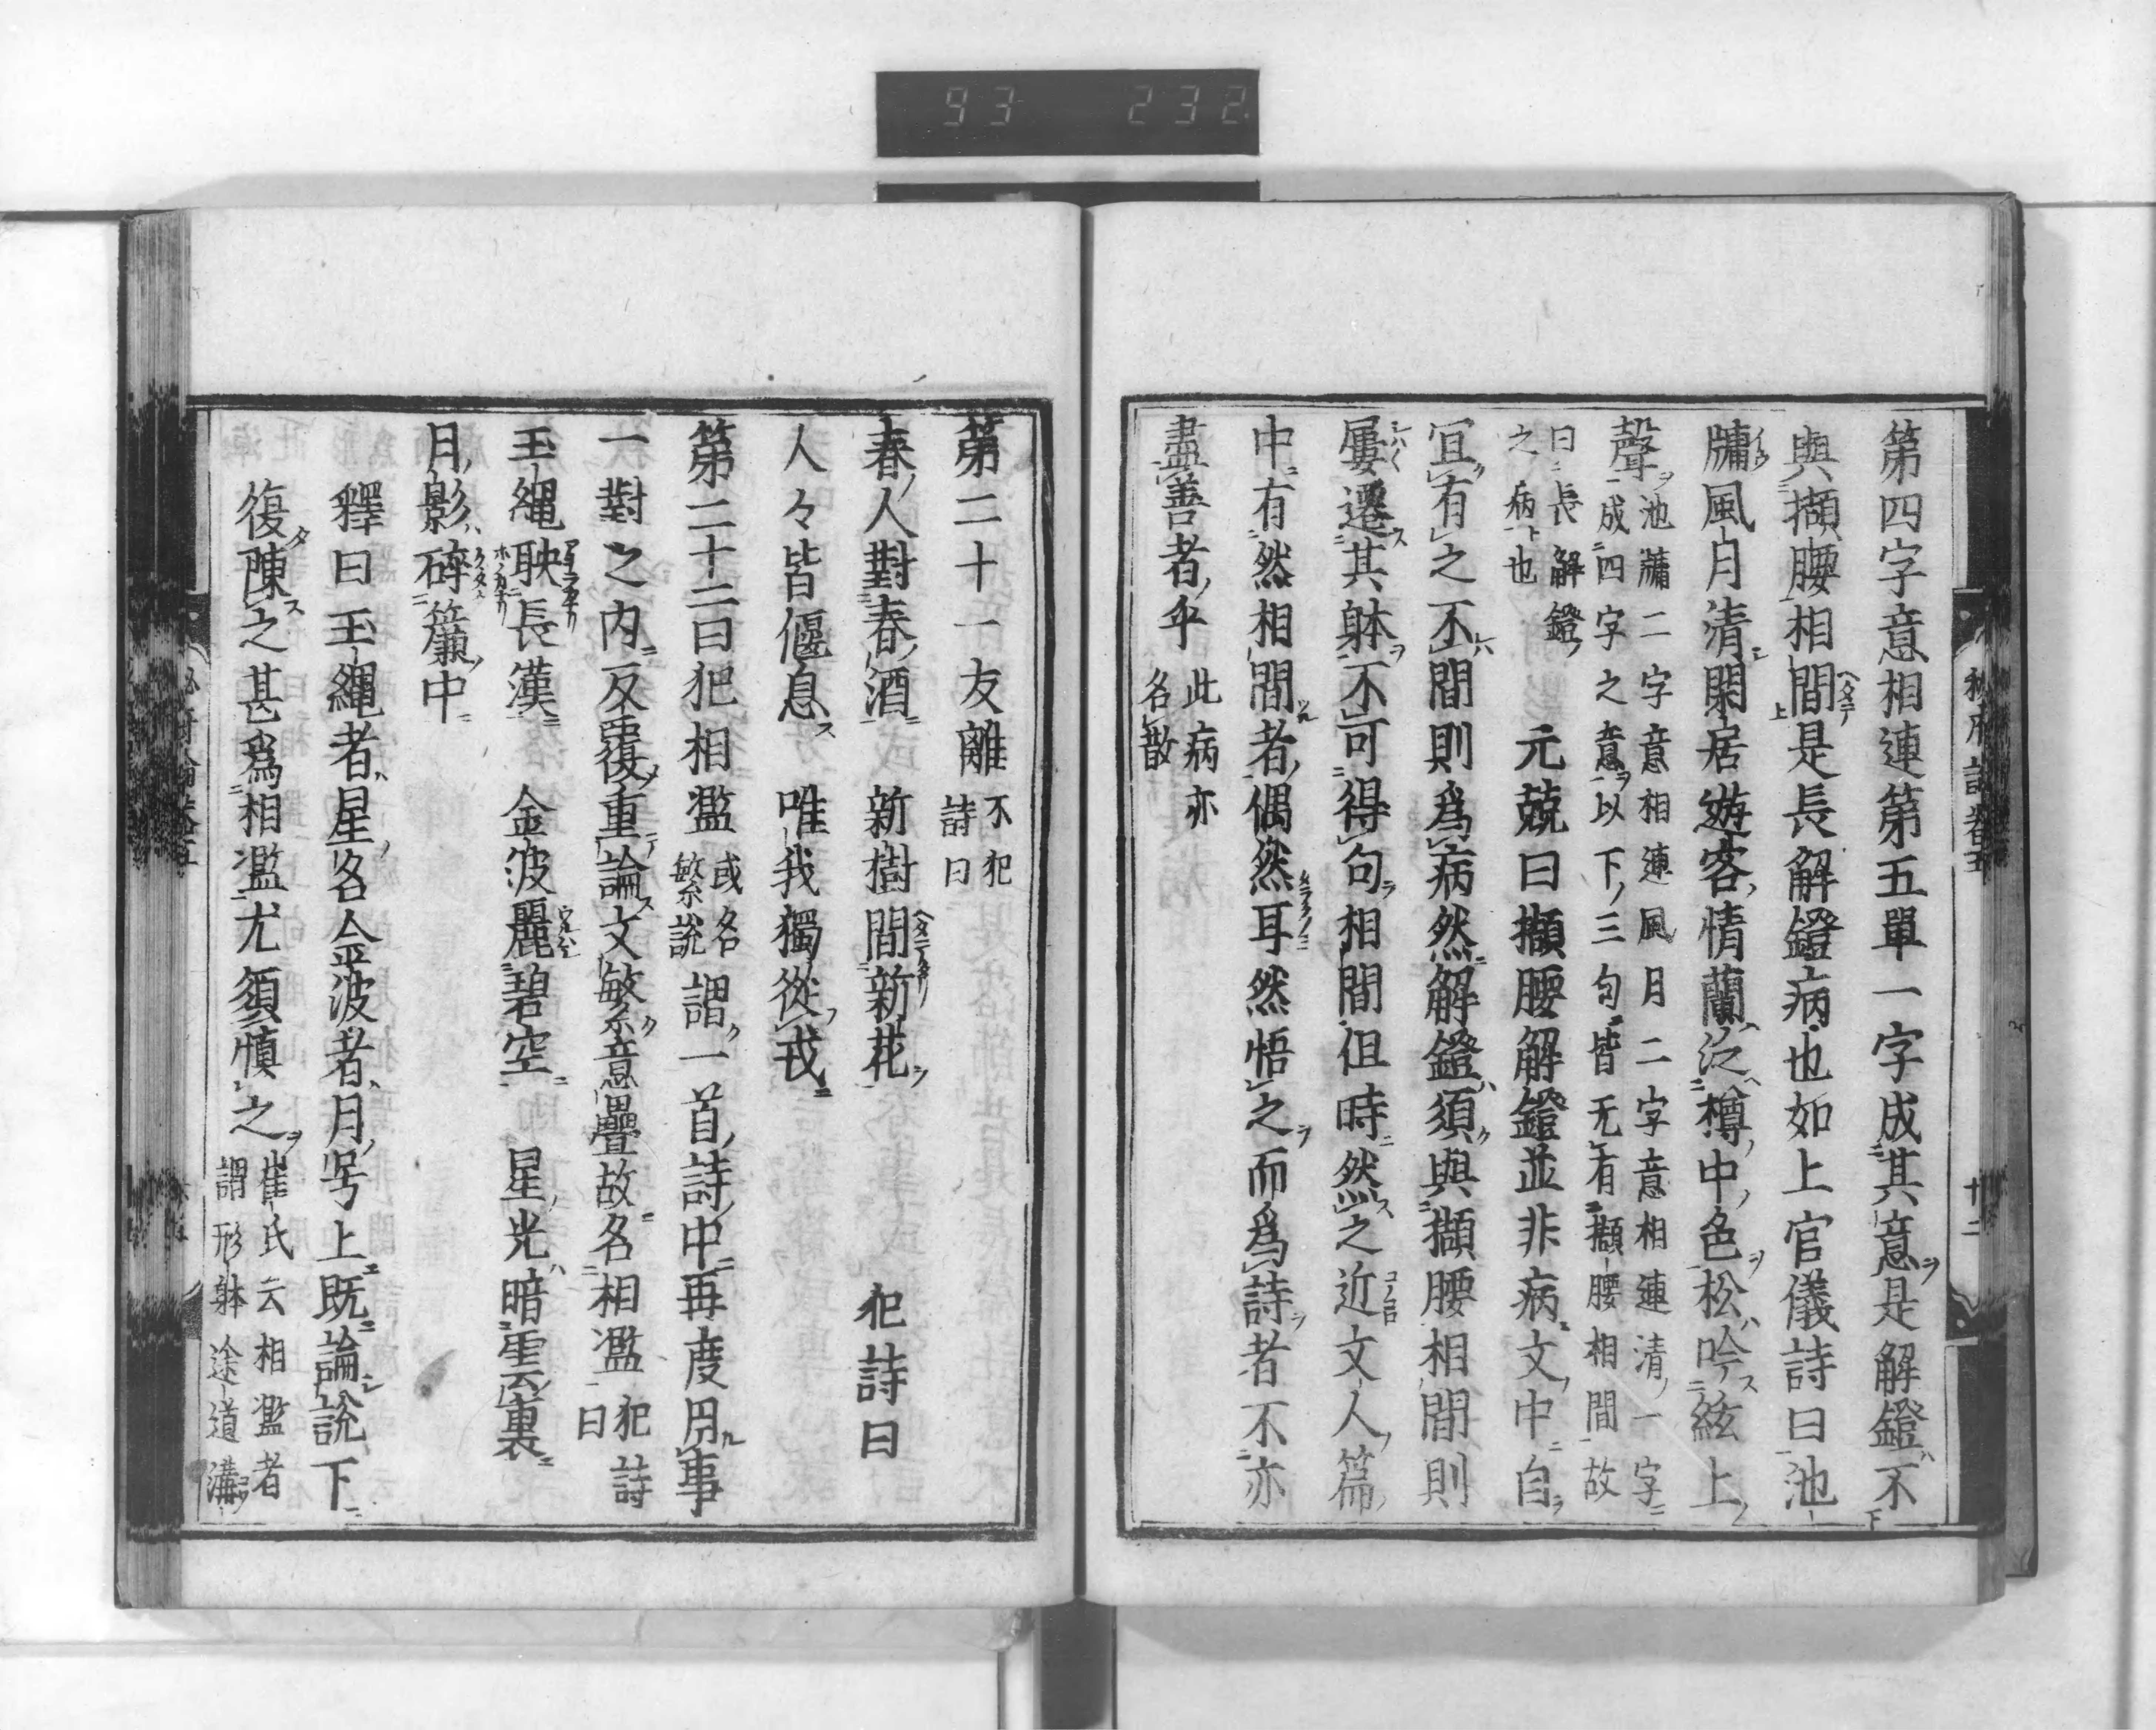 93 232
第四字意相連第五單一字成其意是解鐙不
與擷腰相間是長解鐙病也如上官儀詩曰池
牗風月清閑居遊客情蘭泛樽中色松吟絃上
聲
池牗二字意相連風月二字意相連清一字
成四字之意以下三句皆无有擷腰相間故
曰長解鐙
之病也
元兢曰擷腰解鐙並非病文中自
冝有之不間則爲病然解鐙須與擷腰相間則
屢遷其躰不可得句相間但時然之近文人篇
中有然相間者偶然耳然悟之而爲詩者不亦
盡善者乎
此病亦
名散
第二十一支離
不犯
詩曰
春人對春酒 新樹間新花 犯詩曰
人々皆偃息 唯我獨從戎
第二十二曰犯相濫
或名
繁說
謂一首詩中再度用事
一對之内反覆重論文繁意疊故名相濫
犯詩
曰
玉繩耿長漢 金波麗碧空 星光暗雲裏
月影碎簾中
釋曰玉繩者星名金波者月号上既論說下
復陳之甚爲相濫尤須慎之
崔氏云相濫者
謂形躰途道溝